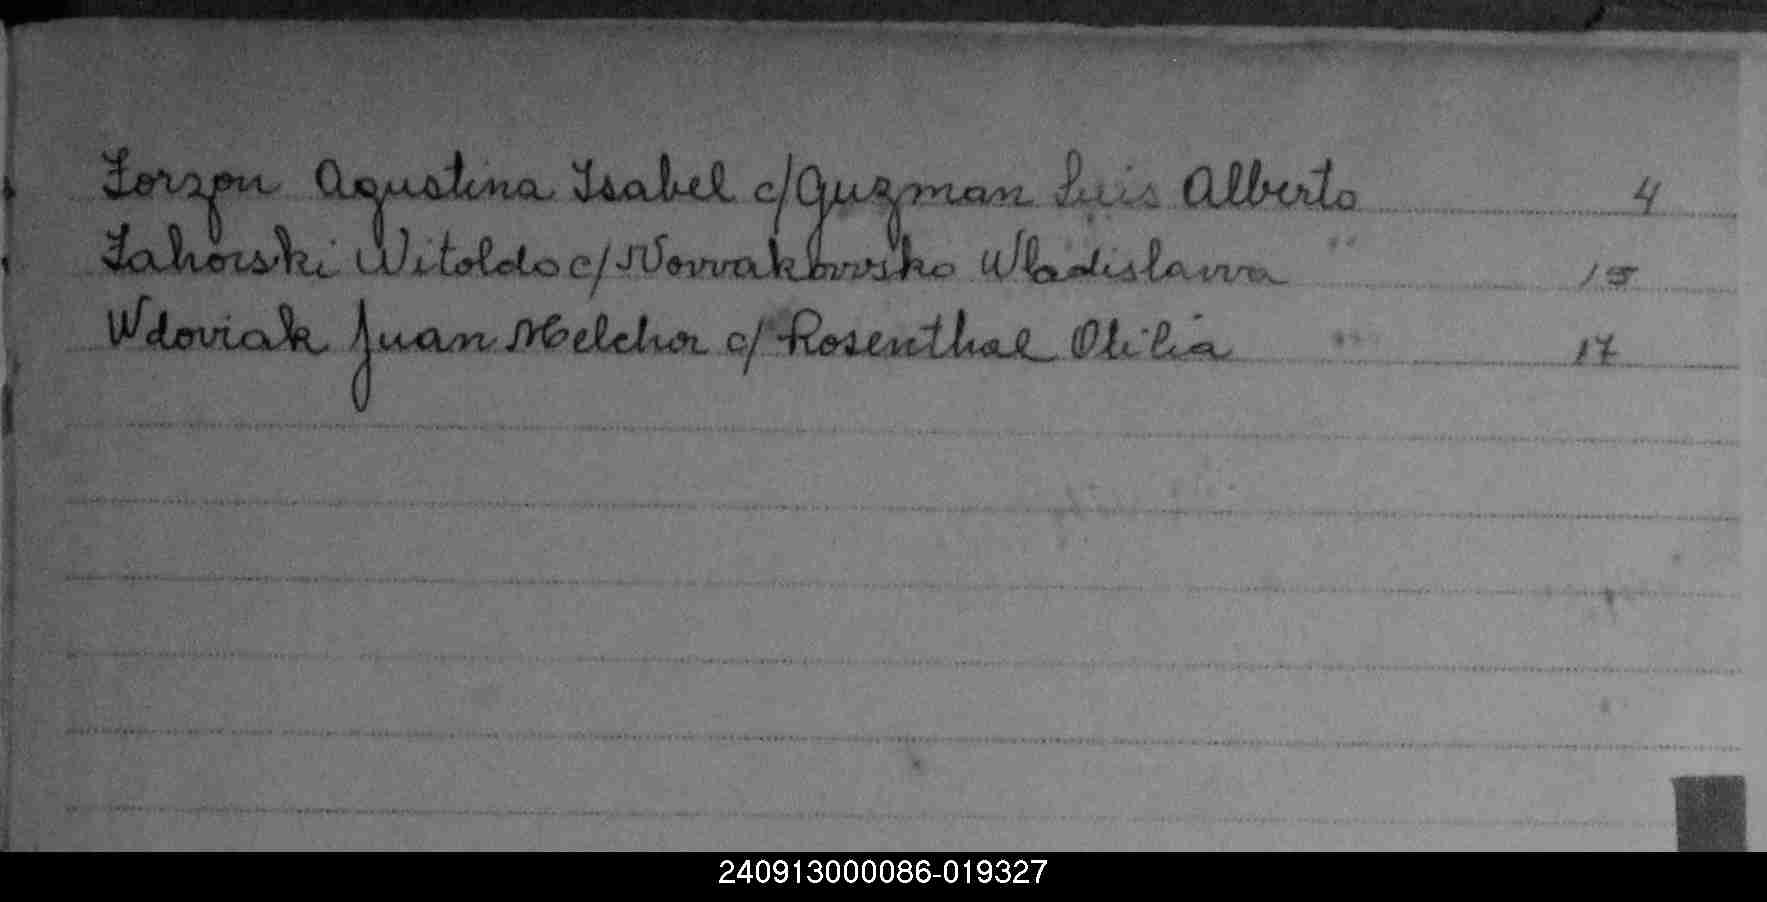 Zorzon Agustina Isabel c/ Guzman Luis Alberto 4
Zahorski Witoldo c/ Novvakovvsko Wladislavva 15
Wdoviak Juan Melchor c/ Rosenthal Otilia 17
240913000086-019327